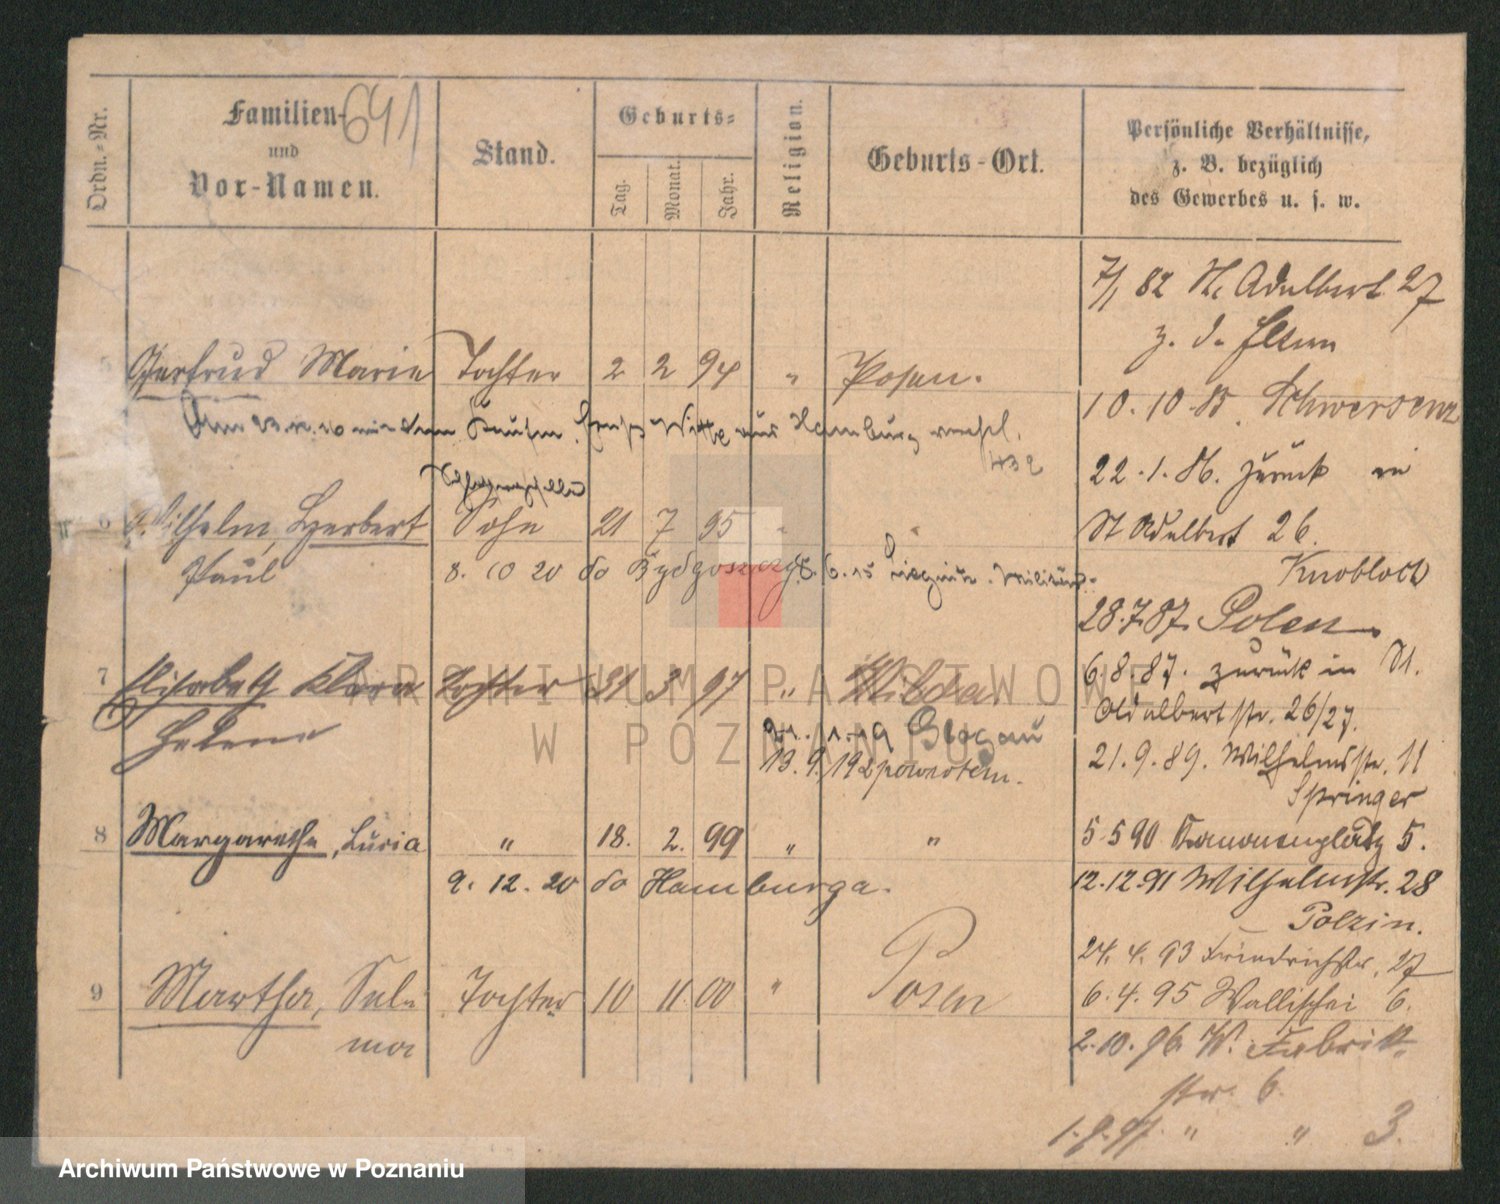 641
Ordn.-Nr.
Familien-
und
Vor-Namen.
Stand.
Geburts-
Tag.
Monat.
Jahr.
Religion.
Geburts-Ort.
Persönliche Verhältnisse,
z. B. bezüglich
des Gewerbes u. s. w.
7/1 82 St. Adalbert 27
z. d.
Gertrud Marie Tochter 2 2 94 " Posen.
10.10.85 Schwersenz
Am 23.12.10 mit dem Kaufm. Witte aus Hamburg verehl.
432
22.1.86. zurück in
6 Wilhelm, Herbert Sohn 21 7 95 " "
St Adalbert 26.
Paul
8. 10 20 do Bydgoszczy 8.6.15 Liegnitz. Militär.
Knobloch
28.7.87. Polen
7 Elisabeth Klara Tochter 31 3 97 " Wilda
6.8.87. zurück in St.
Helene
Adalbertstr. 26/27.
21.1.19 Glogau
13.9.19 z powrotem.
21.9.89. Wilhelmstr. 11
Springer
8 Margarethe, Lucia " 18. 2. 99 " "
5.5 90 Kanonenplatz 5.
9. 12. 20 do Hamburga.
12.12.91 Wilhelmstr. 28
Polzin.
24.4.93 Friedrichstr. 27
9 Martha, Sel- Tochter 10 11 00 " Posen
6.4.95 Wallischei 6.
ma
2.10.96 W. Fabrik
str. 6.
1.9.97 " " 3.
ARCHIWUM PAŃSTWOWE
W POZNANIU
Archiwum Państwowe w Poznaniu